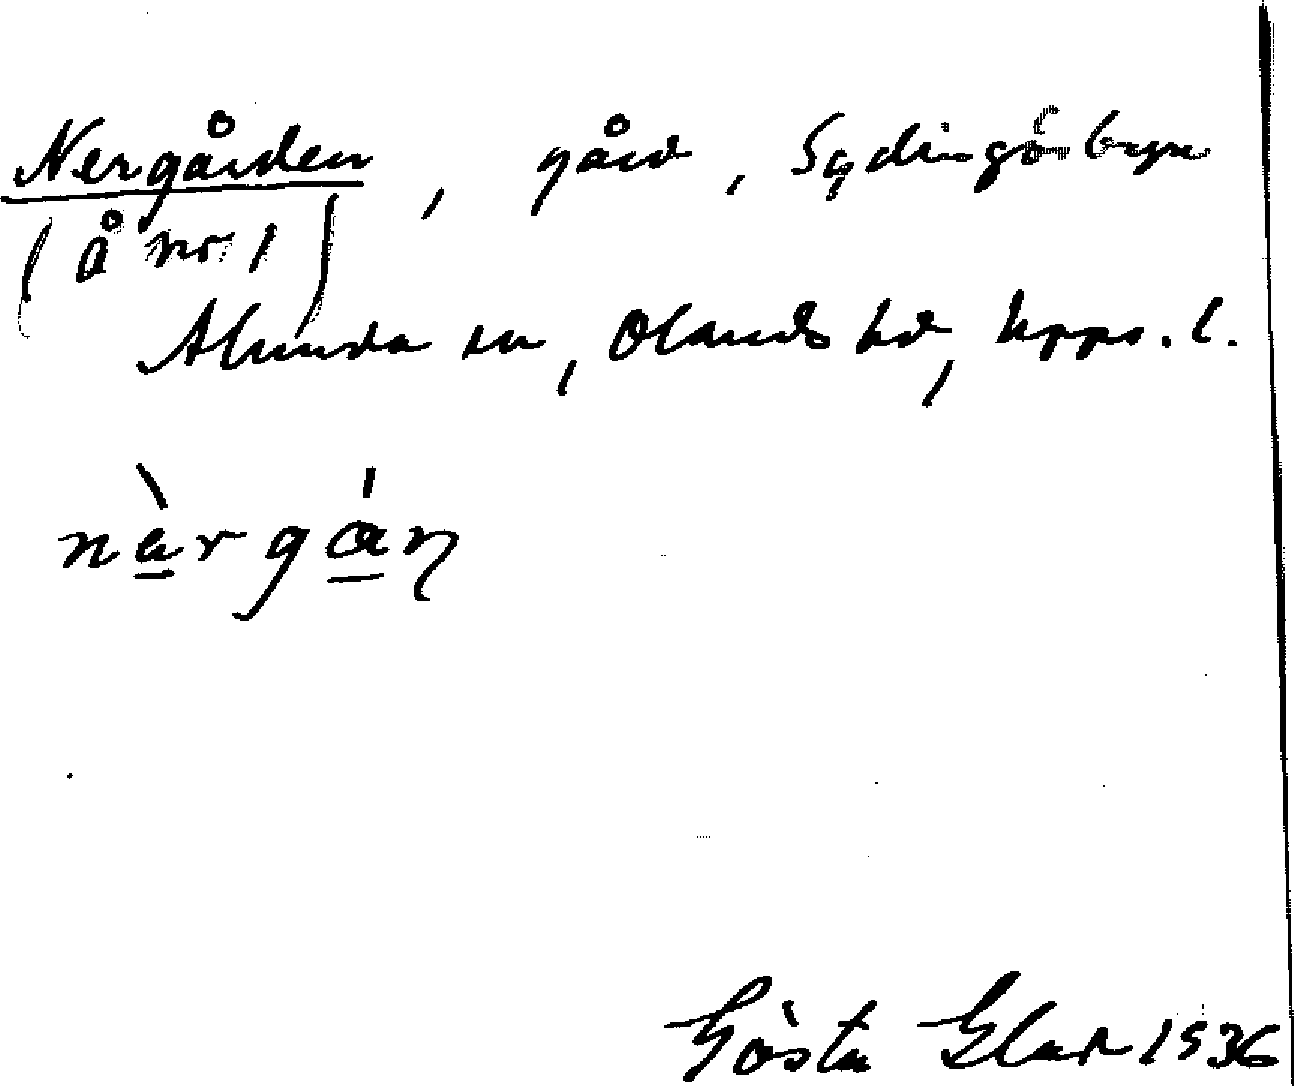 Nergården, gård, Sydingö byn
(å nr 1)
Alunda sn, Olands hd, Upps. l.
nàrgán
Gösta 1936